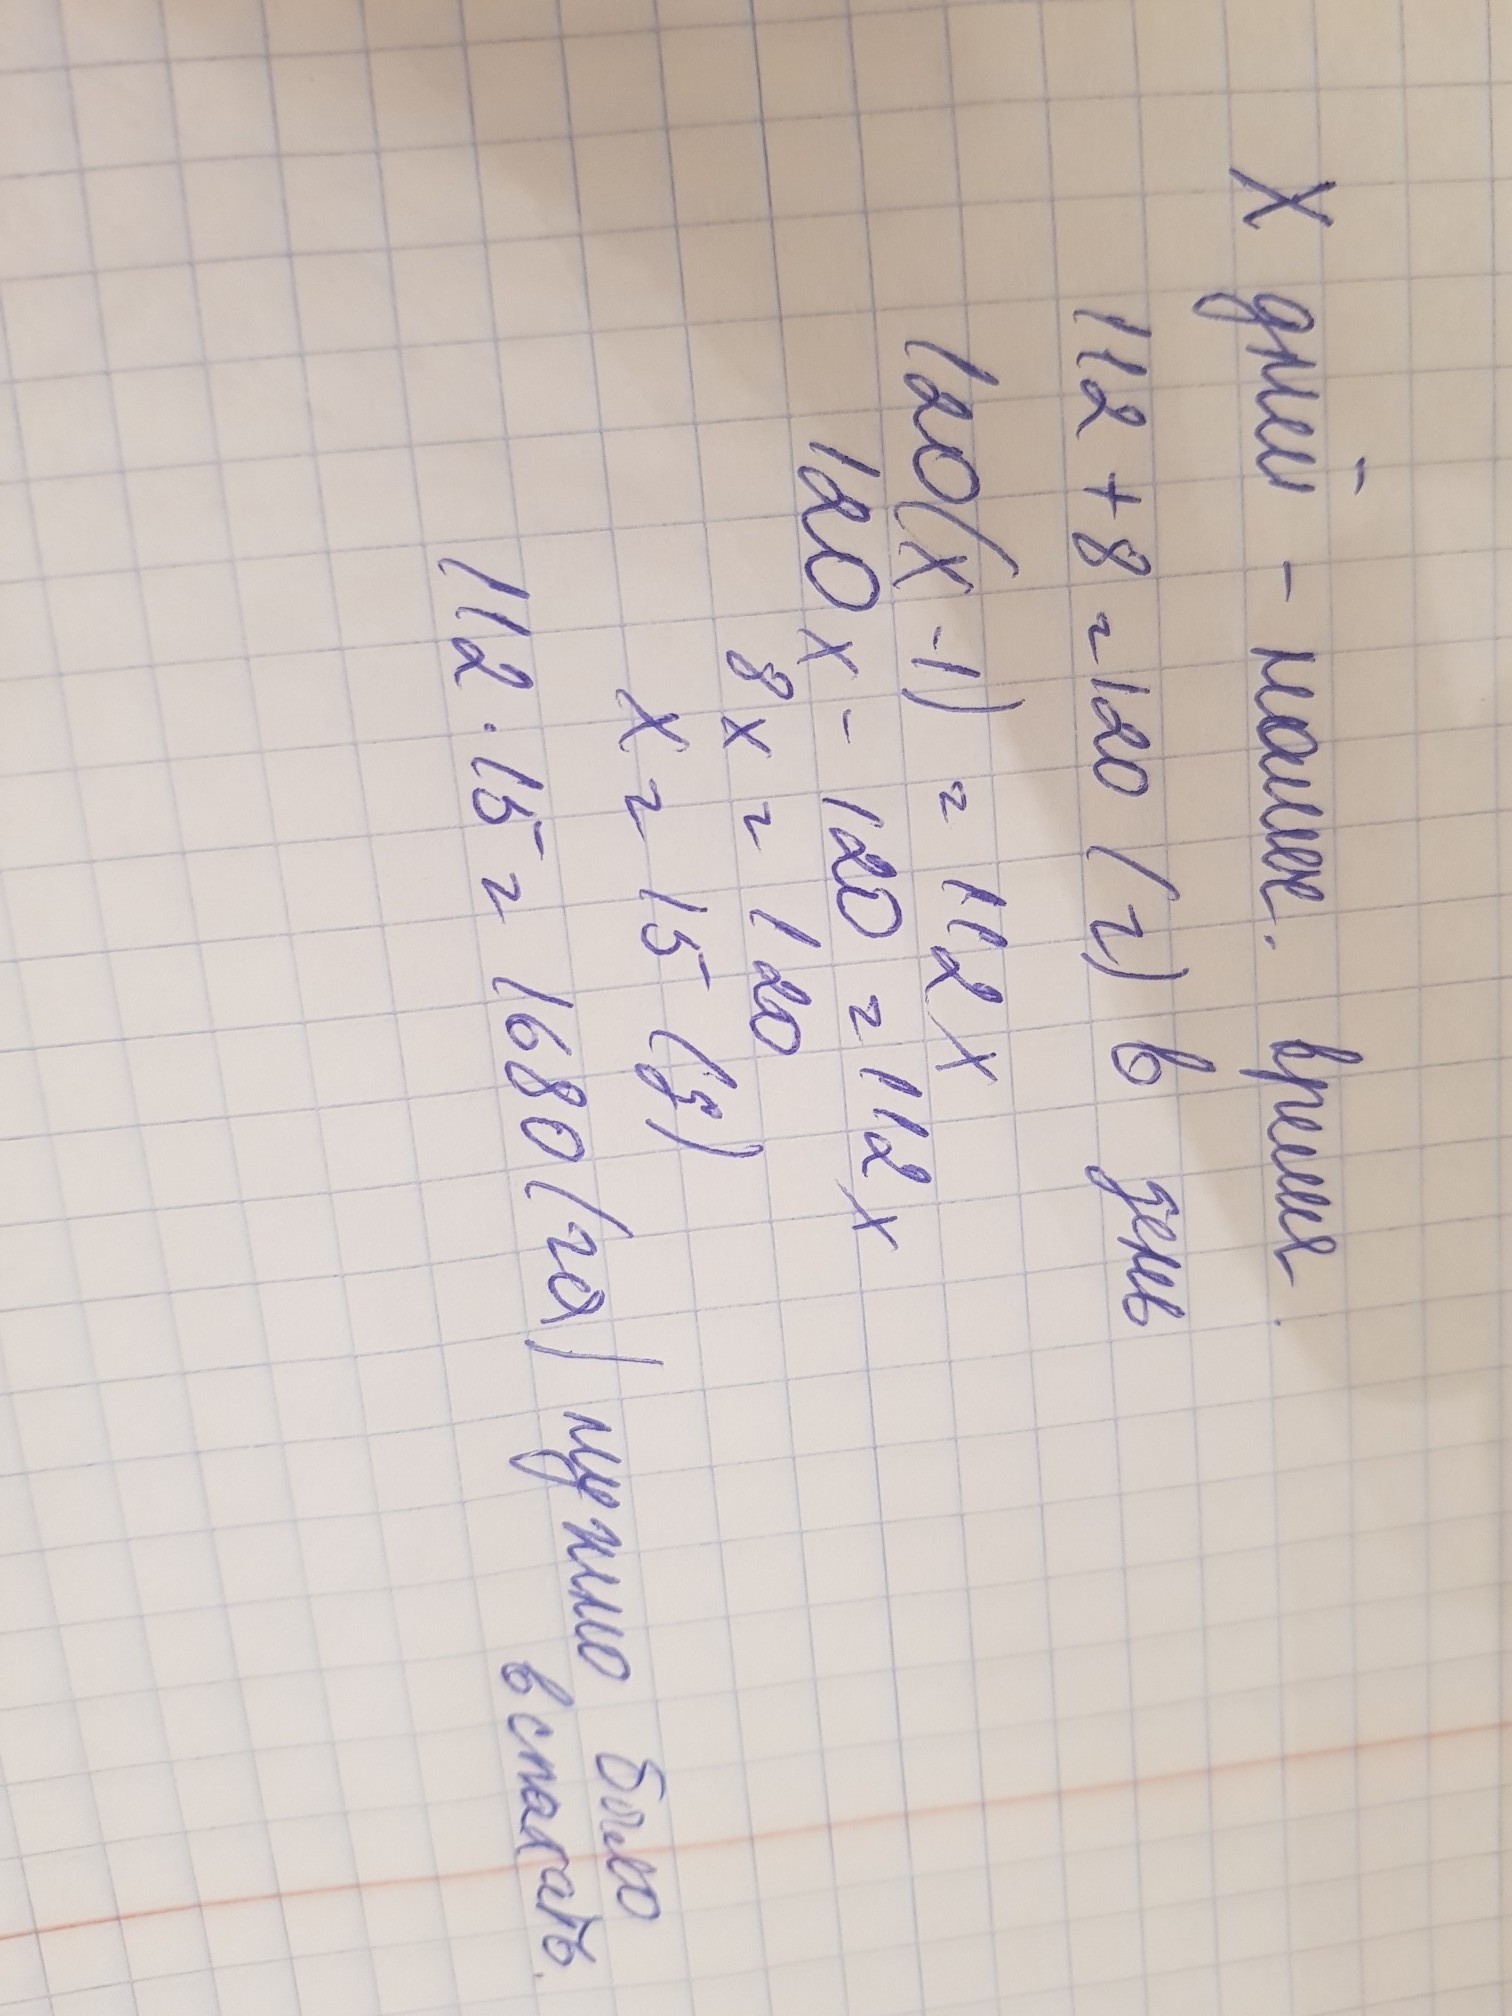 X дней - намеч. время.
112 + 8 = 120 (г) в день
120(x - 1) = 112x
120x - 120 = 112x
8x = 120
x = 15 (д)
112 · 15 = 1680 (га) нужно было
вспахать.